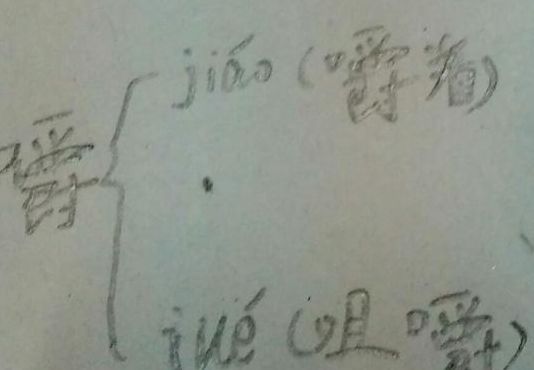 jiáo（嚼着）
嚼
jué（咀嚼）